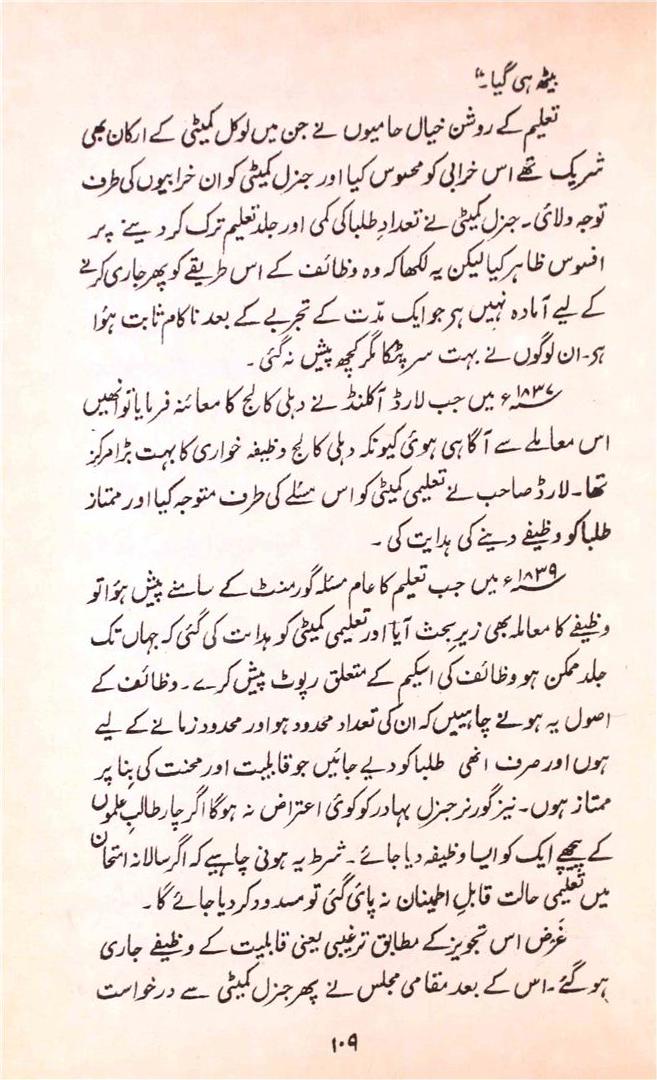 بیٹھ ہی گیا۔"
تعلیم کے روشن خیال حامیوں نے جن میں لوکل کمیٹی کے ارکان بھی
شریک تھے اس خرابی کو محسوس کیا اور جنرل کمیٹی کو ان خرابیوں کی طرف
توجہ دلائی۔ جنرل کمیٹی نے تعدادِ طلبا کی کمی اور جلد تعلیم ترک کر دینے پر
افسوس ظاہر کیا لیکن یہ لکھا کہ وہ وظائف کے اس طریقے کو پھر جاری کرنے
کے لیے آمادہ نہیں ہی جو ایک مدّت کے تجربے کے بعد ناکام ثابت ہؤا
ہی۔ ان لوگوں نے بہت سر پٹکا مگر کچھ پیش نہ گئی۔
۱۸۳۷ء میں جب لارڈ آکلنڈ نے دہلی کالج کا معائنہ فرمایا تو انھیں
اس معاملے سے آگاہی ہوئی کیونکہ دہلی کالج وظیفہ خواری کا بہت بڑا مرکز
تھا۔ لارڈ صاحب نے تعلیمی کمیٹی کو اس مسئلے کی طرف متوجہ کیا اور ممتاز
طلبا کو وظیفے دینے کی ہدایت کی۔
۱۸۳۹ء میں جب تعلیم کا عام مسئلہ گورمنٹ کے سامنے پیش ہؤا تو
وظیفے کا معاملہ بھی زیرِ بحث آیا اور تعلیمی کمیٹی کو ہدایت کی گئی کہ جہاں تک
جلد ممکن ہو وظائف کی اسکیم کے متعلق رپوٹ پیش کرے۔ وظائف کے
اصول یہ ہونے چاہییں کہ ان کی تعداد محدود ہو اور محدود زمانے کے لیے
ہوں اور صرف انھی طلبا کو دیے جائیں جو قابلیت اور محنت کی بِنا پر
ممتاز ہوں۔ نیز گورنر جنرل بہادر کو کوئی اعتراض نہ ہوگا اگر چار طالبِ علموں
کے پیچھے ایک کو ایسا وظیفہ دیا جائے۔ شرط یہ ہونی چاہیے کہ اگر سالانہ امتحان
میں تعلیمی حالت قابلِ اطمینان نہ پائی گئی تو مسدود کر دیا جائے گا۔
غَرَض اس تجویز کے مطابق ترغیبی یعنی قابلیت کے وظیفے جاری
ہو گئے۔ اس کے بعد مقامی مجلس نے پھر جنرل کمیٹی سے درخواست
۱۰۹